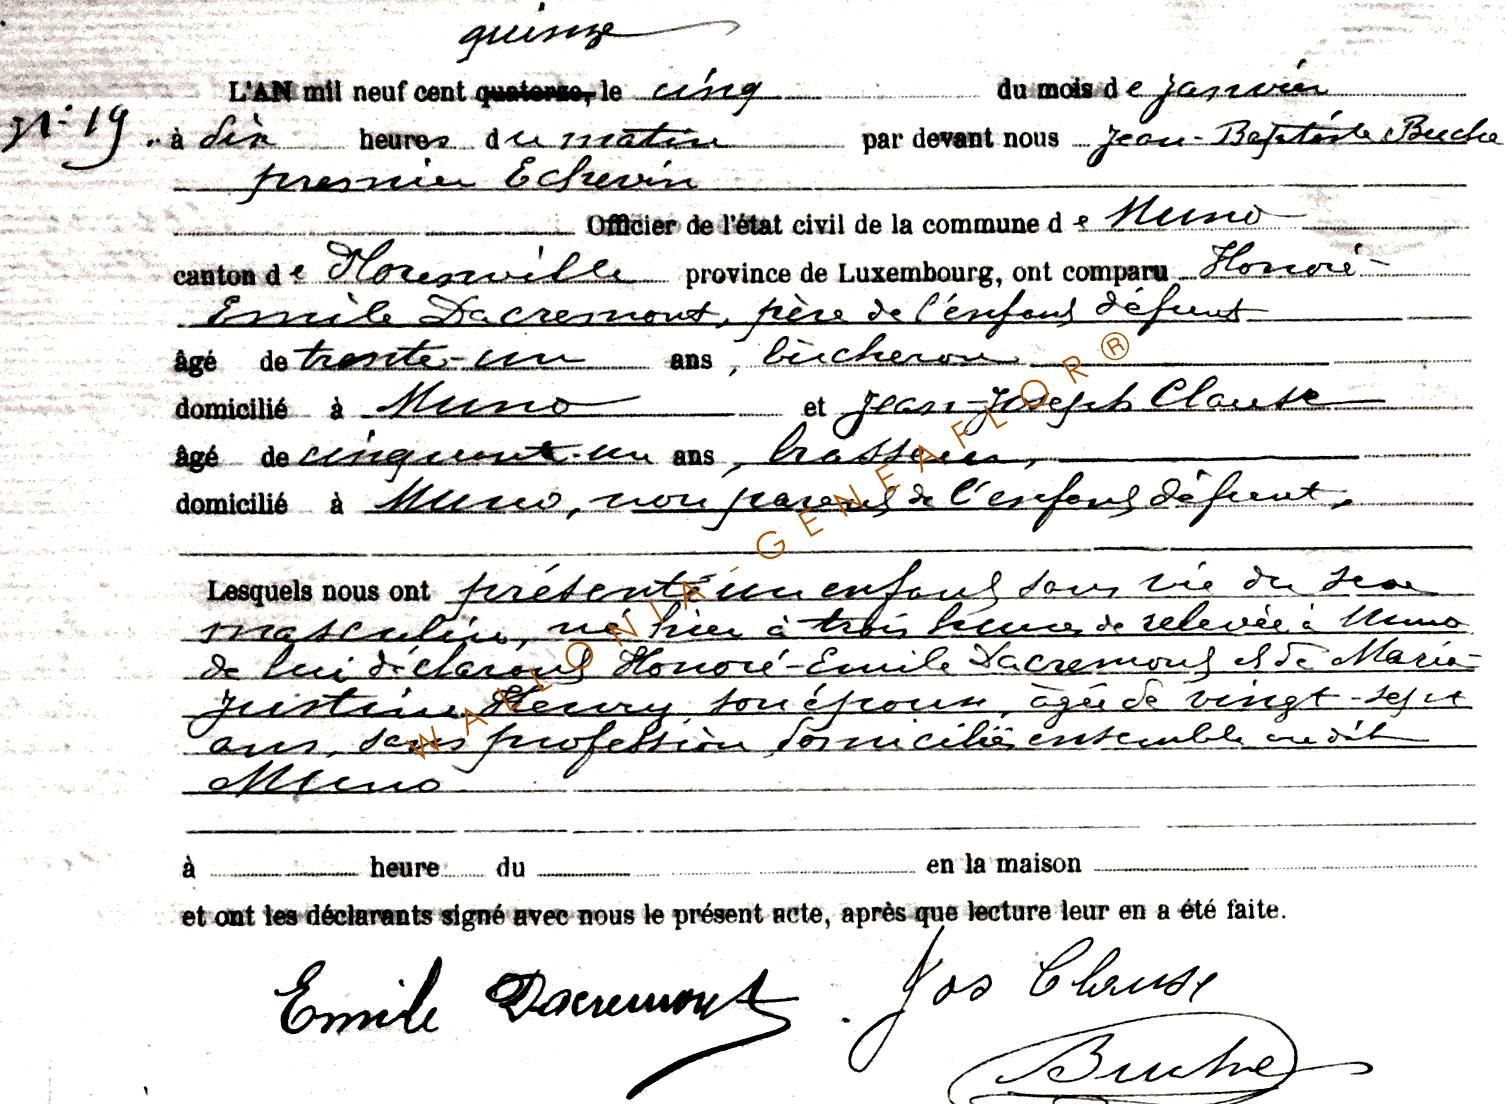 quinze
L'AN mil neuf cent quatorze, le cinq du mois de janvier
N° 19 à dix heures du matin par devant nous Jean-Baptiste Buche
premier Echevin
Officier de l'état civil de la commune de Muno
canton de Florenville province de Luxembourg, ont comparu Honoré-
Emile Dacremont, père de l'enfant défunt
âgé de trente-un ans, bûcheron
domicilié à Muno et Jean-Joseph Clause
âgé de cinquante-un ans, brasseur,
domicilié à Muno, non parent de l'enfant défunt,
Lesquels nous ont présenté un enfant sans vie du sexe
masculin, né hier à trois heures de relevée à Muno
de lui déclarant Honoré-Emile Dacremont et de Marie-
Justine Henry son épouse, âgée de vingt-sept
ans, sans profession domiciliés ensemble au dit
Muno
à heure du en la maison
et ont les déclarants signé avec nous le présent acte, après que lecture leur en a été faite.
Emile Dacremont. Jos Clause
Buche
WALLONIA-GENEAFLOR®